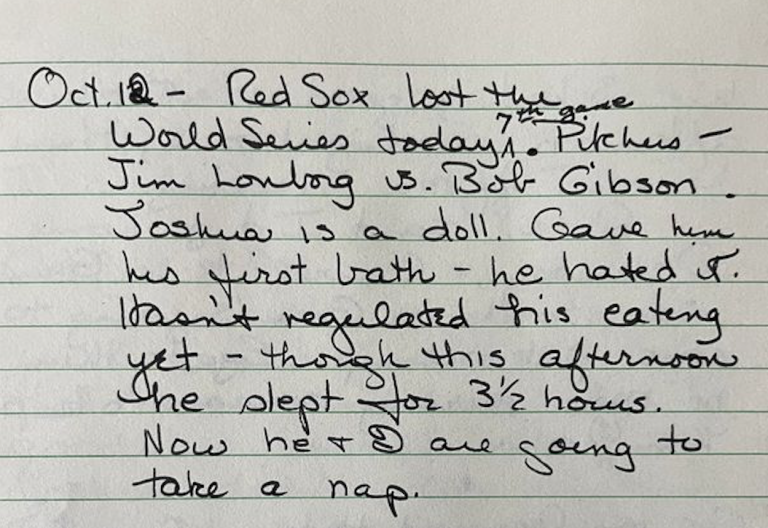 Oct. 12 - Red Sox lost the
World Series today 7th game. Pitchers -
Jim Lonborg vs. Bob Gibson.
Joshua is a doll. Gave him
his first bath - he hated it.
Hasn't regulated his eating
yet - though this afternoon
he slept for 3½ hours.
Now he + I are going to
take a nap.